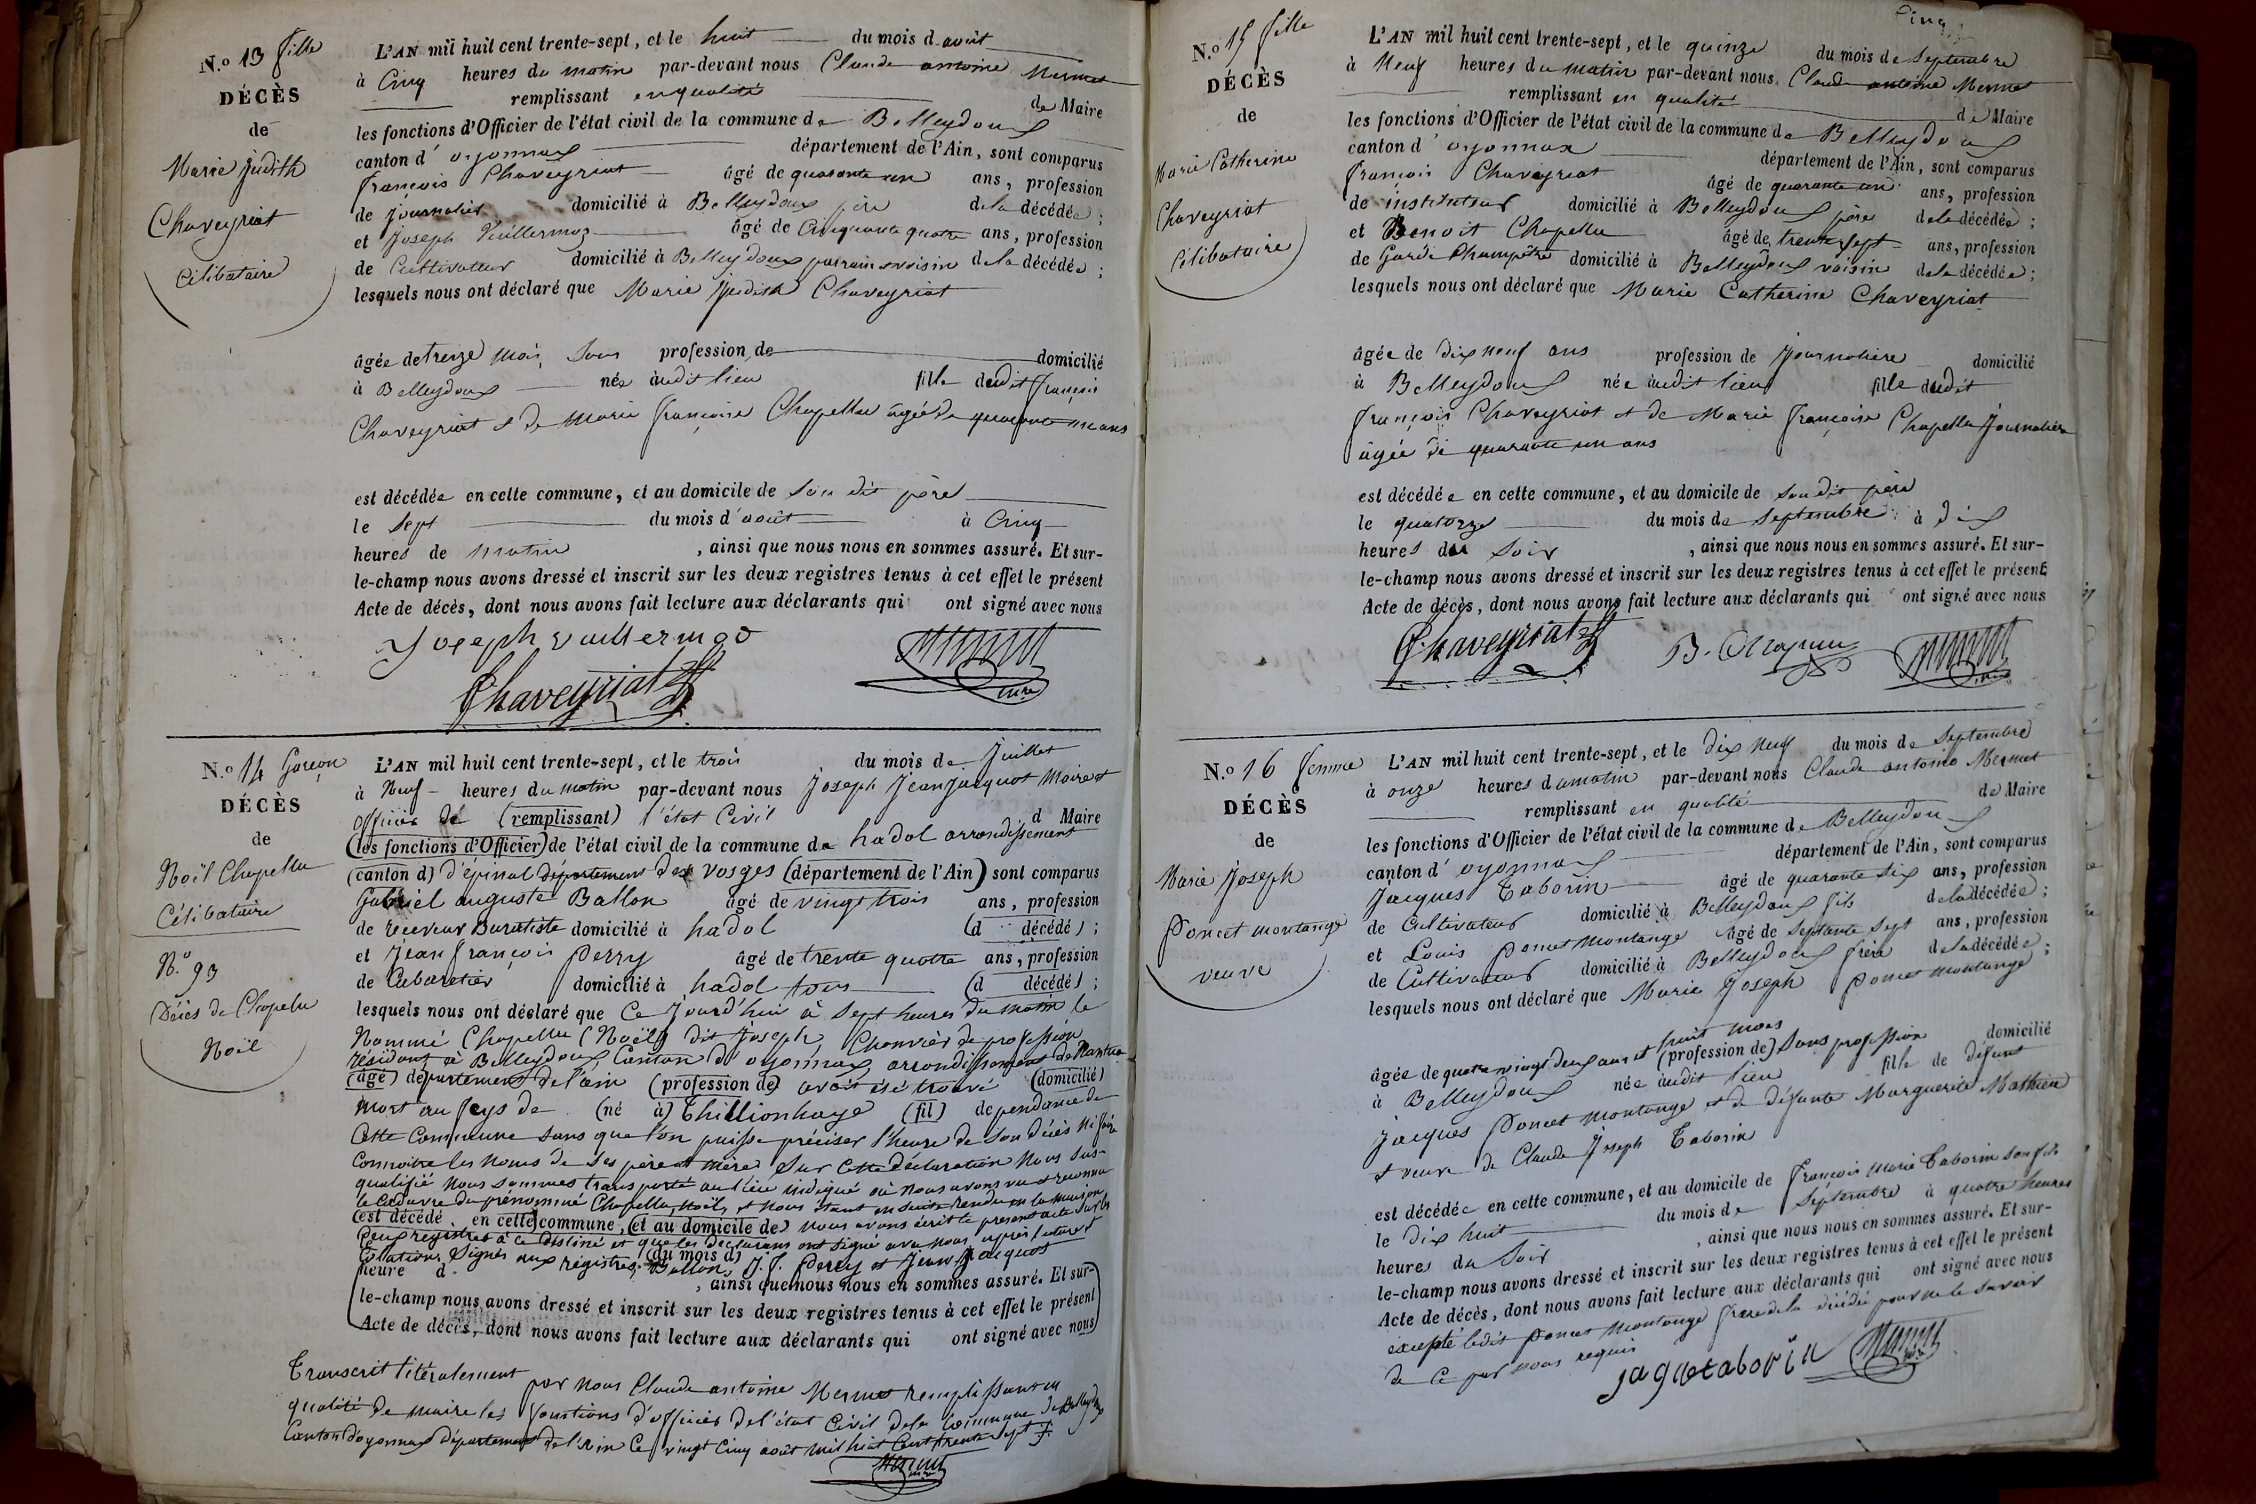 N.o 13 fille
DÉCÈS
de
Marie judith
Chaveyriat
Célibataire
L'AN mil huit cent trente-sept, et le huit du mois d août
à Cinq heures du matin par-devant nous Claude antoine Mermet
remplissant en qualité de Maire
les fonctions d'Officier de l'état civil de la commune de Belleydoux
canton d' oyonnax département de l'Ain, sont comparus
françois Chaveyriat âgé de quarante un ans, profession
de journalier domicilié à Belleydoux père de la décédée ;
et Joseph Vuillermoz âgé de Cinquante quatre ans, profession
de Cultivateur domicilié à Belleydoux parrain voisin de la décédée ;
lesquels nous ont déclaré que Marie Judith Chaveyriat
âgée de treize mois sans profession de domicilié
à Belleydoux née audit lieu fille dudit françois
Chaveyriat & de Marie françoise Chapellu âgée de quarante un ans
est décédée en cette commune, et au domicile de son dit père
le sept du mois d'août à Cinq
heures de matin , ainsi que nous nous en sommes assuré. Et sur-
le-champ nous avons dressé et inscrit sur les deux registres tenus à cet effet le présent
Acte de décès, dont nous avons fait lecture aux déclarants qui ont signé avec nous
Joseph vuillermoz
Chaveyriat
Mermet
maire
N.o 14 Garçon
DÉCÈS
de
Noël Chapellu
Célibataire
N.o 93
Décès de Chapellu
Noël
L'AN mil huit cent trente-sept, et le trois du mois de Juillet
à Neuf heures du matin par-devant nous Joseph Jeanjacquot Maire et
officier de (remplissant) l'état Civil d Maire
(les fonctions d'Officier) de l'état civil de la commune de hadol arrondissement
(canton d) d'épinal département des vosges (département de l'Ain) sont comparus
Gabriel auguste Ballon âgé de vingt trois ans, profession
de receveur Buraliste domicilié à hadol (d décédé) ;
et Jean françois Perry âgé de trente quatre ans, profession
de Cabaretier domicilié à hadol tous (d décédé) ;
lesquels nous ont déclaré que Ce Jourd'hui à sept heures du matin le
Nommé Chapellu (Noël) dit Joseph Chanvrier de profession
résidant à Belleydoux Canton d'oyonnax arrondissement de Nantua
(âgé) département de l'ain (profession de) avait été trouvé (domicilié)
mort au feys de (né à) Thillionhaye (fil) dependance de
Cette Commune sans que l'on puisse préciser l'heure de son décès ni faire
Connoitre les noms de ses père et mère Sur Cette déclaration Nous sus-
qualifié nous sommes transporté au lieu indiqué où nous avons vu et reconnu
le Cadavre du prénommé Chapellu Noël, et nous étant ensuite rendu en la maison
(est décédé en cette) commune, (et au domicile de) nous avons écrit le présent acte sur les
deux registres à ce destiné et que les declarans ont signé avec nous après lecture et
Collation Signés aux registres (du mois d) Ballon, J. f. Perry et Jeanjacquot
heure d , ainsi que nous nous en sommes assuré. Et sur-
le-champ nous avons dressé et inscrit sur les deux registres tenus à cet effet le présent
Acte de décès, dont nous avons fait lecture aux déclarants qui ont signé avec nous
Transcrit litéralement par nous Claude antoine Mermet remplissant en
qualité de maire les fonctions d'officier de l'état Civil de la Commune de Belleydoux
Canton d'oyonnax département de l'Ain Ce vingt Cinq août mil huit Cent trente sept
Mermet
Cinq
N.o 15 fille
DÉCÈS
de
Marie Catherine
Chaveyriat
Célibataire
L'AN mil huit cent trente-sept, et le quinze du mois de Septembre
à Neuf heures du matin par-devant nous Claude antoine Mermet
remplissant en qualité de Maire
les fonctions d'Officier de l'état civil de la commune de Belleydoux
canton d' oyonnax département de l'Ain, sont comparus
françois Chaveyriat âgé de quarante un ans, profession
de instituteur domicilié à Belleydoux père de la décédée ;
et Benoit Chapellu âgé de trente sept ans, profession
de Garde Champêtre domicilié à Belleydoux voisin de la décédée ;
lesquels nous ont déclaré que Marie Catherine Chaveyriat
âgée de dix neuf ans profession de Journalière domicilié
à Belleydoux née audit lieu fille dudit
françois Chaveyriat & de Marie françoise Chapellu Journalière
âgée de quarante un ans
est décédée en cette commune, et au domicile de son dit père
le quatorze du mois de Septembre à dix
heures du Soir , ainsi que nous nous en sommes assuré. Et sur-
le-champ nous avons dressé et inscrit sur les deux registres tenus à cet effet le présent
Acte de décès, dont nous avons fait lecture aux déclarants qui ont signé avec nous
Chaveyriat
B. Chapellu
Mermet
N.o 16 femme
DÉCÈS
de
Marie Joseph
Poncet montange
veuve
L'AN mil huit cent trente-sept, et le dix neuf du mois de Septembre
à onze heures du matin par-devant nous Claude antoine Mermet
remplissant en qualité de Maire
les fonctions d'Officier de l'état civil de la commune de Belleydoux
canton d' oyonnax département de l'Ain, sont comparus
Jacques Taborin âgé de quarante six ans, profession
de Cultivateur domicilié à Belleydoux fils de la décédée ;
et Louis poncet montange âgé de septante sept ans, profession
de Cultivateur domicilié à Belleydoux frère de la décédée ;
lesquels nous ont déclaré que Marie Joseph Poncet montange
âgée de quatre vingt deux ans et huit mois (profession de) Sans profession domicilié
à Belleydoux née audit lieu fille de défunt
Jacques Poncet montange & de défunte Marguerite Mathieu
& veuve de Claude Joseph Taborin
est décédée en cette commune, et au domicile de françois Marie Taborin son fils
le dix huit du mois de Septembre à quatre heures
heures du Soir , ainsi que nous nous en sommes assuré. Et sur-
le-champ nous avons dressé et inscrit sur les deux registres tenus à cet effet le présent
Acte de décès, dont nous avons fait lecture aux déclarants qui ont signé avec nous
excepté ledit Poncet montange frère de la décédée pour ne le savoir
de ce par nous requis
jaquetaborin
Mermet